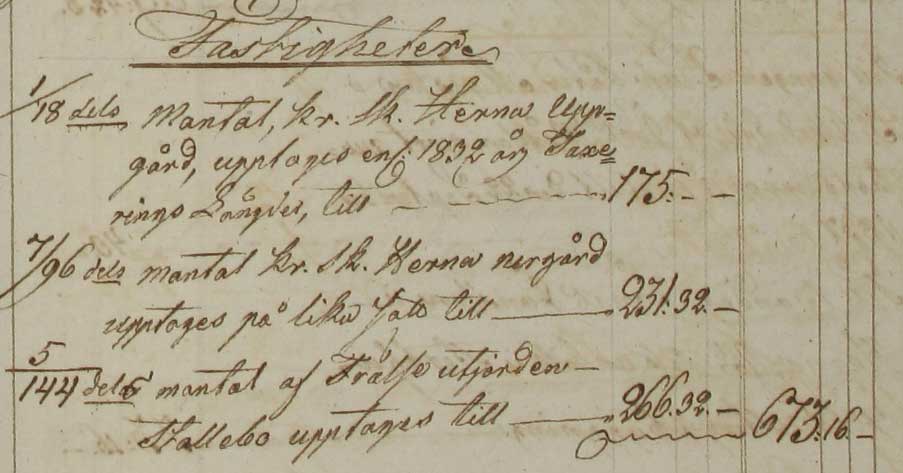 Fastigheter
1/18 dels Mantal, kr. Sk. Herna Upp=
gård, upptages enl: 1832 års Taxe=
rings Längder, till 175. - -
7/96 dels mantal kr. Sk. Herna nergård
upptages på lika sätt till 231.32. -
5/144 dels mantal af Frälse utjorden
Stallebo upptages till 266.32. - 673.16. -